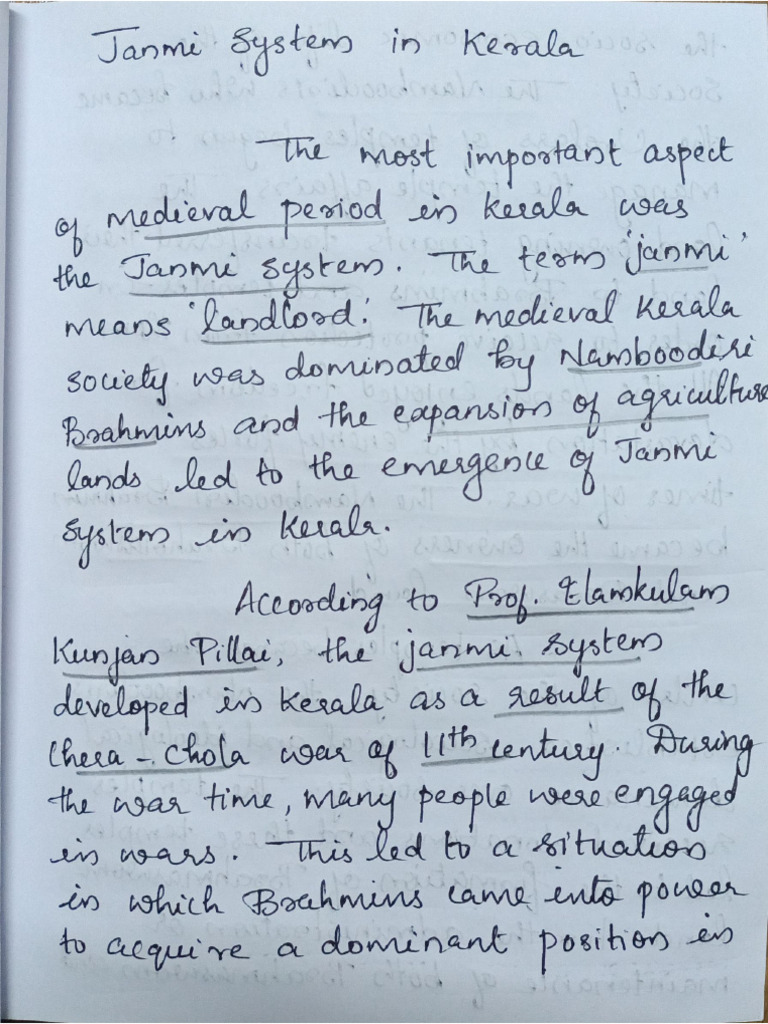 Janmi System in Kerala
The most important aspect
of medieval period in Kerala was
the Janmi system. The term 'janmi'
means 'landlord'. The medieval Kerala
society was dominated by Namboodiri
Brahmins and the expansion of agriculture
lands led to the emergence of Janmi
system in Kerala.
According to Prof. Elamkulam
Kunjan Pillai, the janmi system
developed in Kerala as a result of the
Chera - Chola war of 11th century. During
the war time, many people were engaged
in wars. This led to a situation
in which Brahmins came into power
to acquire a dominant position in